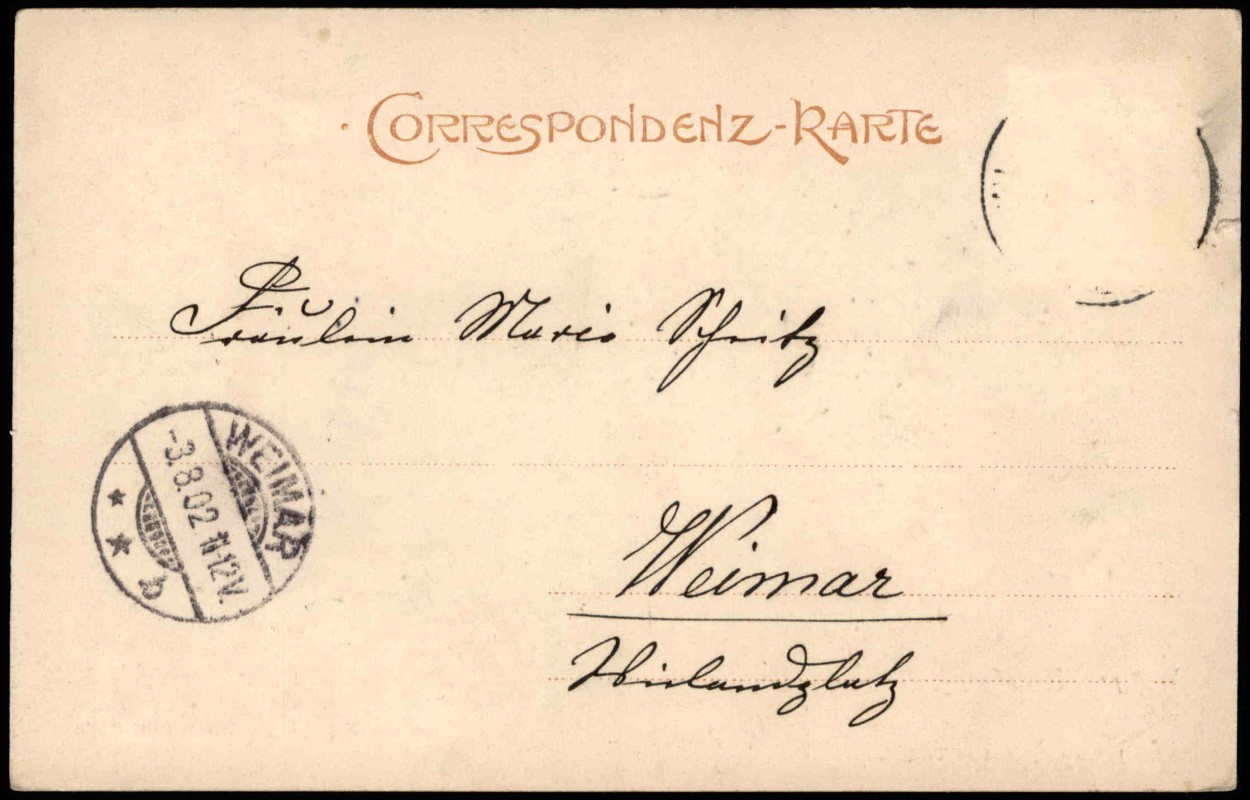 CORRESPONDENZ-KARTE
Fräulein Marie
WEIMAR
-3.8.02.11-12V.
b
Weimar
Wielandplatz